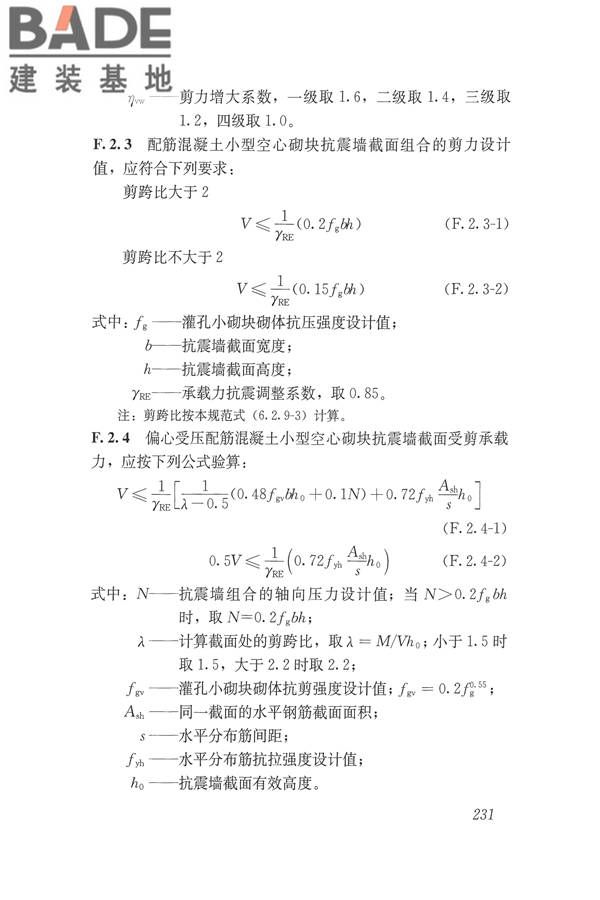 BADE
建装基地
ηvw——剪力增大系数，一级取 1.6，二级取 1.4，三级取
1.2，四级取 1.0。
F.2.3 配筋混凝土小型空心砌块抗震墙截面组合的剪力设计
值，应符合下列要求：
剪跨比大于 2
V ≤ 1/γRE (0.2fgbh) (F.2.3-1)
剪跨比不大于 2
V ≤ 1/γRE (0.15fgbh) (F.2.3-2)
式中：fg——灌孔小砌块砌体抗压强度设计值；
b——抗震墙截面宽度；
h——抗震墙截面高度；
γRE——承载力抗震调整系数，取 0.85。
注：剪跨比按本规范式（6.2.9-3）计算。
F.2.4 偏心受压配筋混凝土小型空心砌块抗震墙截面受剪承载
力，应按下列公式验算：
V ≤ 1/γRE [1/(λ－0.5) (0.48fgvbh0＋0.1N)＋0.72fyh Ash/s h0]
(F.2.4-1)
0.5V ≤ 1/γRE (0.72fyh Ash/s h0) (F.2.4-2)
式中：N——抗震墙组合的轴向压力设计值；当 N>0.2fgbh
时，取 N=0.2fgbh；
λ——计算截面处的剪跨比，取 λ = M/Vh0；小于 1.5 时
取 1.5，大于 2.2 时取 2.2；
fgv——灌孔小砌块砌体抗剪强度设计值；fgv = 0.2fg^0.55；
Ash——同一截面的水平钢筋截面面积；
s——水平分布筋间距；
fyh——水平分布筋抗拉强度设计值；
h0——抗震墙截面有效高度。
231